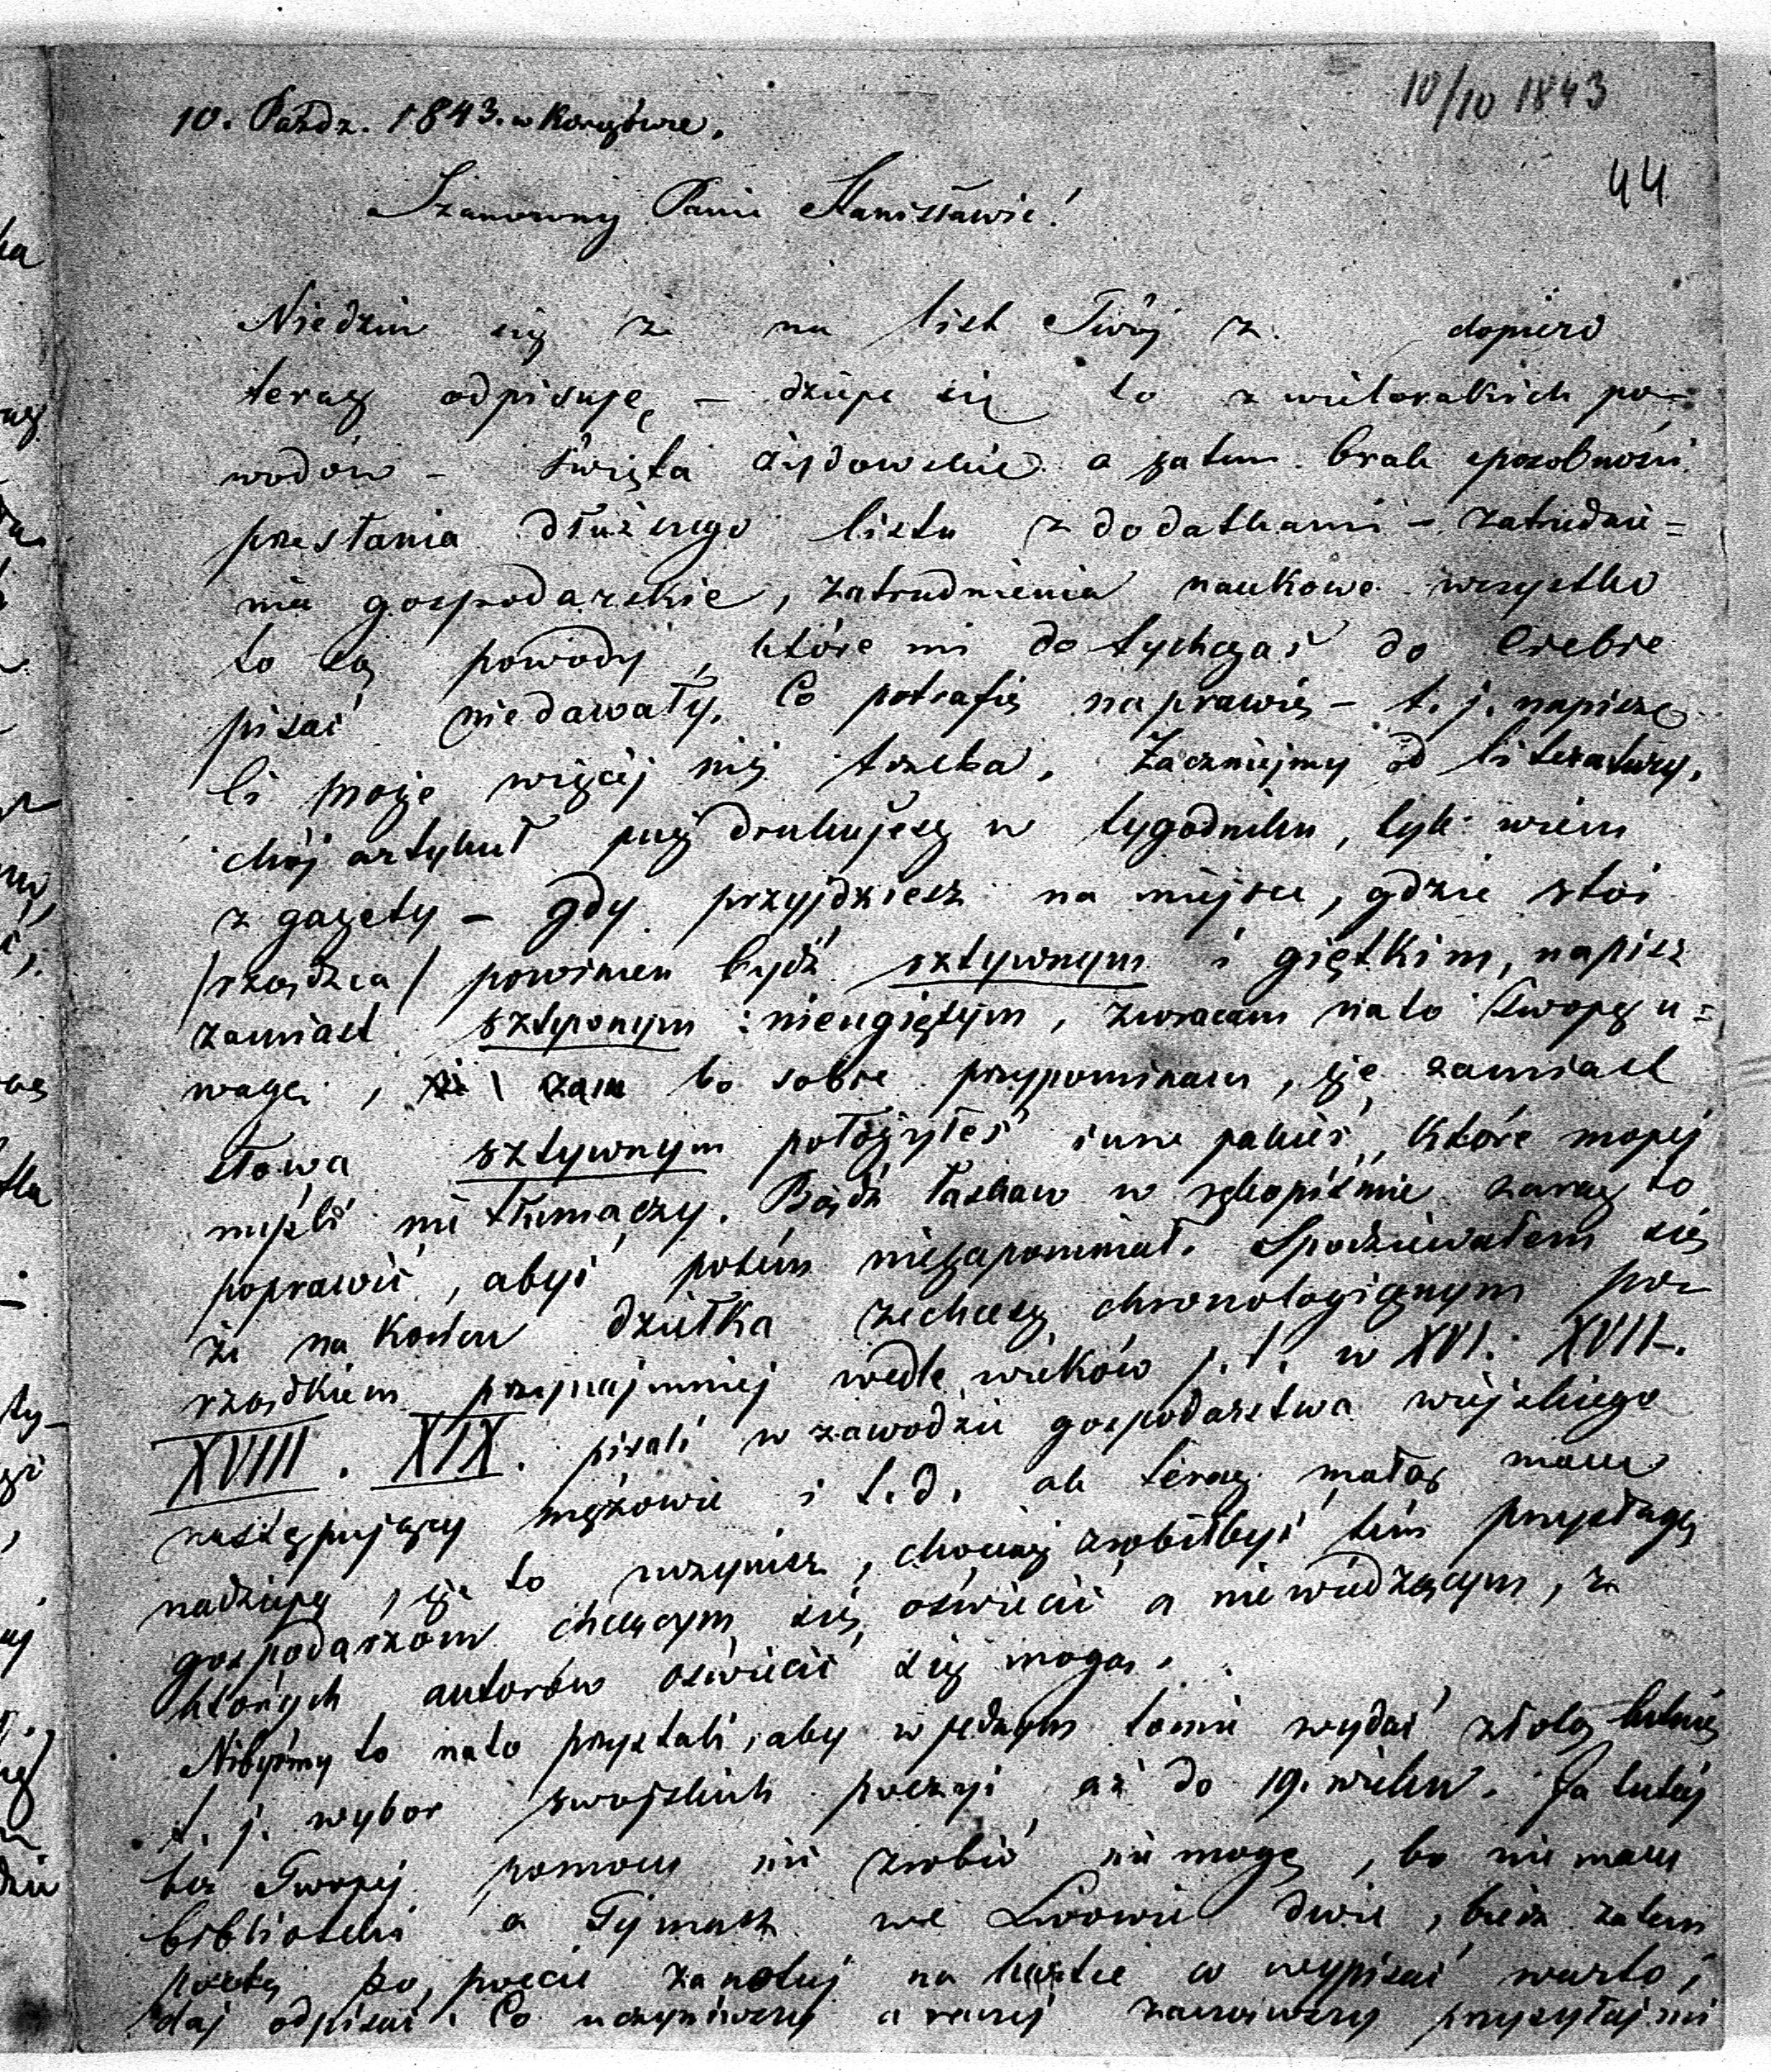 10/10 1843
10. Paźdz. 1843. w
44
Szanowny Panie Stanisławie!
Niedziw się że na list Twój z dopiero
teraz odpisuję – dzieje się to z wielorakich po-
wodów – święta żydowskie a zatem brak sposobności
przesłania dłuższego listu z dodatkami – zatrudnie=
nia gospodarskie, zatrudnienia naukowe wszystko
to są powody, które mi dotychczas do Ciebie
pisać niedawały. Co potrafię naprawię – t. j. napiszę
Ci może więcej niż trzeba. Zacznijmy od literatury.
Mój artykuł już drukujesz w tygodniku, tyle wiem
z gazety – gdy przyjdziesz na miejsce, gdzie stoi
/rządzca/ powinien bydź sztywnym i giętkim, napisz
zamiast sztywnym : nieugiętym, zwracam na to Twoję u=
wagę, bo sobie przypominam, że zamiast
słowa sztywnym położyłeś inne jakieś, które mojej
myśli nie tłumaczy. Bądź łaskaw w rękopiśmie zaraz to
poprawić, abyś potém niezapomniał. Spodziewałem się
że na końcu dziełka zechcesz chronologicznym po-
rządkiem przynajmniej wedle wieków j. t. w XVI. XVII.
XVIII. XIX. pisali w zawodzie gospodarstwa wiejskiego
następujący mężowie i t. d. ale teraz małą mam
nadzieję, że to uczynisz, chociaż zrobiłbyś tém przysługę
gospodarzom chcącym się oświecić a niewiedzącym, z
których autorów oświecić się mogą.
Nibyśmy to na to przystali, aby w jednym tomie wydać złotą lutnię
t. j. wybor swojskich poezyi aż do 19. wieku. Ja tutaj
bez Twojej pomocy nic zrobić nie mogę, bo nie mam
biblioteki a Ty masz we Lwowie dwie, bierz zatem
poetę po poecie zanotuj na kartce co wypisać warto i
daj odpisać. Co uczyniwszy a raczej przysyłaj mi